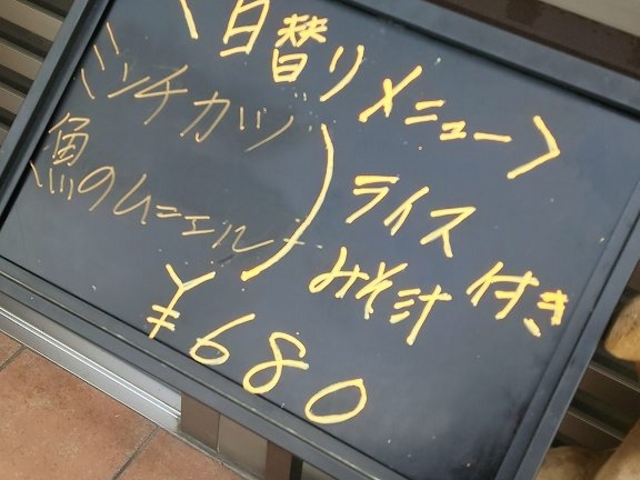 〈日替りメニュー〉
ミンチカツ
魚のムニエル
ライス
みそ汁 付き
¥680